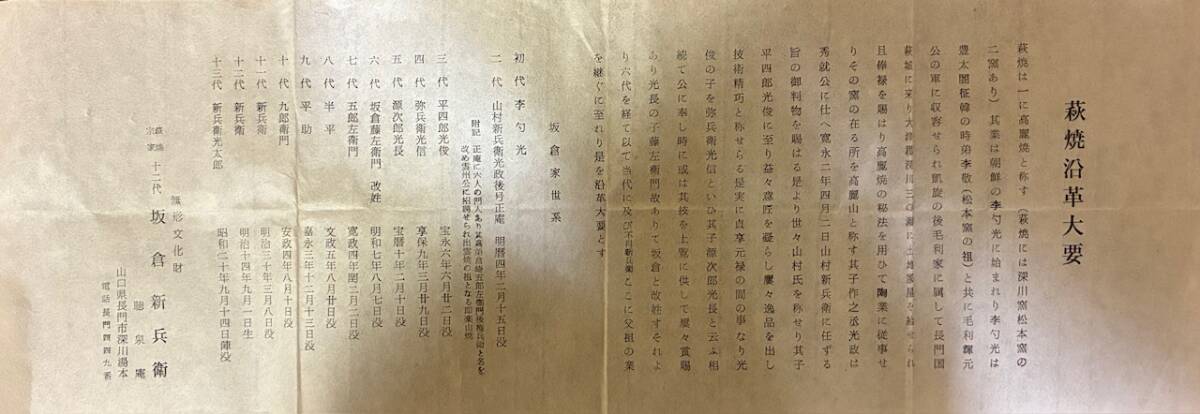 萩焼沿革大要
萩焼は一に高麗焼と称す(萩焼には深川窯松本窯の
二窯あり)其業は朝鮮の李勺光に始まれり李勺光は
豊太閤征韓の時弟李敬(松本窯の祖)と共に毛利輝元
公の軍に収容せられ凱旋の後毛利家に属して長門国
萩城に来り大津郡深川三の瀬に土地家屋を給せられ
且俸禄を賜はり高麗焼の秘法を用ひて陶業に従事せ
りその窯の在る所を高麗山と称す其子作之丞光政は
秀就公に仕へ寛永二年四月二日山村新兵衛に任ずる
旨の御判物を賜はる是より世々山村氏を称せり其子
平四郎光俊に至り益々意匠を凝らし屢々逸品を出し
技術精巧と称せらる是実に貞享元禄の間の事なり光
俊の子を弥兵衛光信といひ其子源次郎光長と云ふ相
続て公に奉し時に或は其技を上覧に供して屢々賞賜
あり光長の子藤左衛門故ありて坂倉と改姓すそれよ
り六代を経て以て当代に及び不肖新兵衛ここに父祖の業
を継ぐに至れり是を沿革大要とす
坂倉家世系
初代 李勺光
二代 山村新兵衛光政後号正庵 明暦四年二月十五日没
附記 正庵に六人の門人あり其高弟倉崎五郎左衛門後権兵衛と名を
改め雲州公に招聘せられ出雲焼の祖となる即楽山焼
三代 平四郎光俊 宝永六年六月廿二日没
四代 弥兵衛光信 享保九年三月廿九日没
五代 源次郎光長 宝暦十年二月十日没
六代 坂倉藤左衛門 改姓 明和七年八月七日没
七代 五郎左衛門 寛政四年閏二月二日没
八代 半平 文政五年八月七日没
九代 平助 嘉永三年十二月十三日没
十代 九郎衛門 安政四年八月十日没
十一代 新兵衛 明治三十年三月八日没
十二代 新兵衛 明治十四年九月一日生
十三代 新兵衛光太郎 昭和二十年九月十四日陣没
無形文化財
萩焼宗家 十二代 坂倉新兵衛
聴泉庵
山口県長門市深川湯本
電話長門四四九番